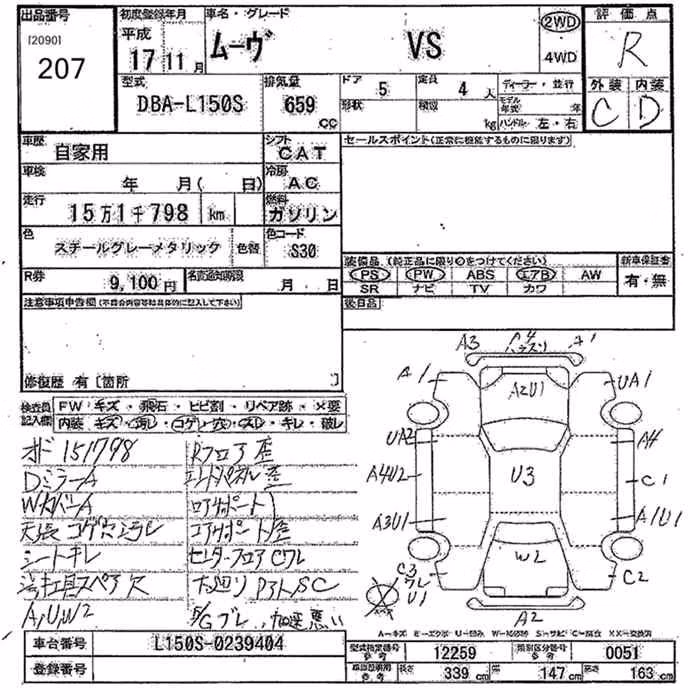 出品番号
[2090]
207
初度登録年月
平成
17 11月
車名・グレード
ムーヴ VS
2WD
4WD
評価点
R
外装 内装
C D
型式
DBA-L150S
排気量
659 cc
ドア 5
形状
定員 4 人
積載 kg
ディーラー・並行
モデル年式 年
ハンドル 左・右
車歴
自家用
シフト
CAT
車検
年 月( 日)
冷房
AC
走行
15万1千798 km
燃料
ガソリン
色
スチールグレーメタリック
色替
色コード
S30
R券
9,100円
名変通知期限
月 日
セールスポイント(正常に機能するものに限ります)
装備品(純正品に限り○をつけてください)
PS PW ABS エアB AW
SR ナビ TV カワ
新車保証書
有・無
後日品
注意事項申告欄(不具合内容等を具体的に記入して下さい)
修復歴 有 [箇所 ]
検査員記入欄
FW キズ・飛石・ヒビ割・リペア跡・×要
内装 キズ・汚れ・コゲ・穴・スレ・キレ・破レ
オド151798
Dミラーム
WカバーA
天張コゲ穴シミヨゴレ
シートキレ
工具スペア欠
A,U,W2
Rフロア歪
エンドパネル歪
コアサポート歪
センターフロアCワレ
下廻りSC
E/Gブレ、加速悪い
A3
A4
A1
A1
A2U1
UA1
UA2
A4
A4U2
U3
C1
A3U1
A1U1
W2
C3
ワレ
U1
C2
A2
A-キズ E-エクボ U-凹み W-補修跡 S-サビ C-腐食 XX-交換済
車台番号
L150S-0239404
登録番号
型式指定番号 参考
12259
類別区分番号 参考
0051
車両諸元 参考
長さ 339 cm
幅 147 cm
高さ 163 cm